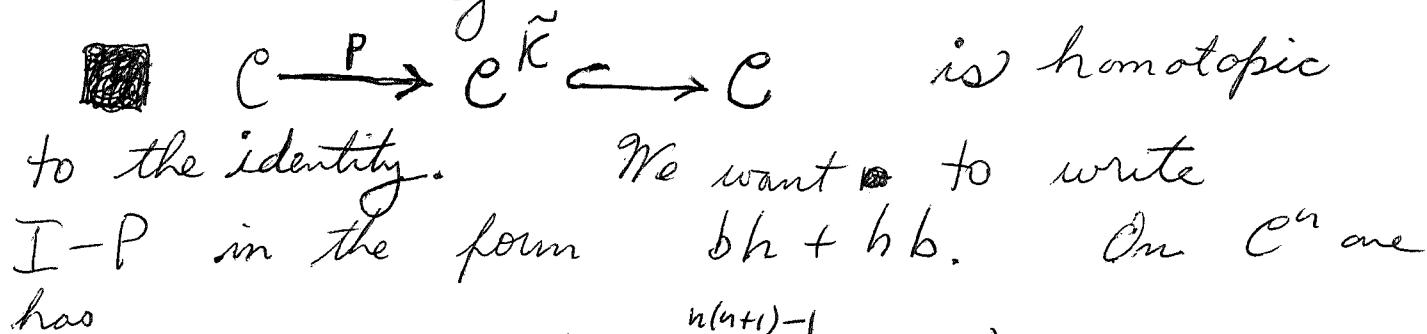 C —P→ C^K̃ ↪ C is homotopic
to the identity. We want to write
I-P in the form bh + hb. On C^n one
has n(n+1)-1